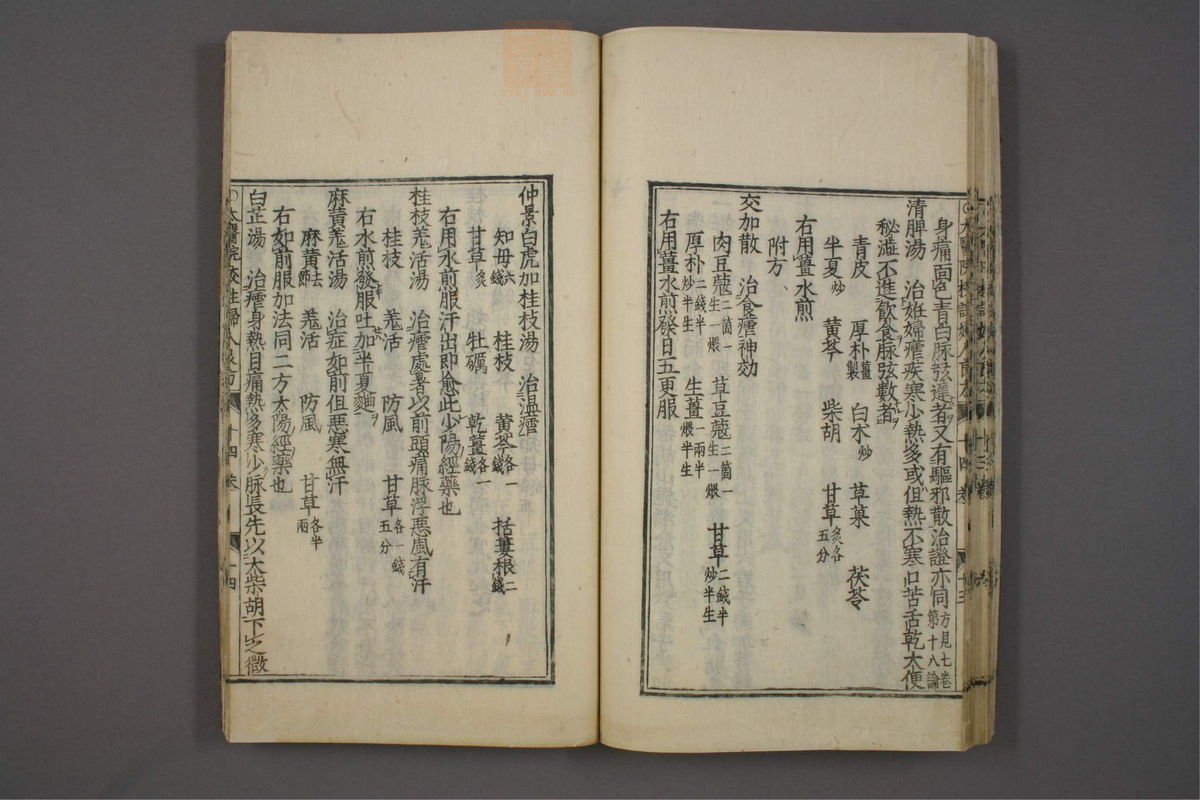 身痛面色青白脉弦遲者又有驅邪散治證亦同方見七卷第十八論
清脾湯　治姙婦瘧疾寒少熱多或但熱不寒口苦舌乾大便
秘澁不進飲食脉弦數者
青皮　厚朴薑製　白朮炒　草菓　茯苓
半夏炒　黄芩　柴胡　甘草炙各五分
右用薑水煎
附方
交加散　治食瘧神効
肉豆蔻二箇一生一煨　草豆蔻二箇一生一煨　甘草二錢半炒半生
厚朴二錢半炒半生　生薑一兩半煨半生
右用薑水煎發日五更服
仲景白虎加桂枝湯　治温瘧
知母六錢　桂枝　黄芩各一錢　括蔞根二錢
甘草炙　牡礪　乾薑各一錢
右用水煎服汗出即愈此少陽經藥也
桂枝羗活湯　治瘧處暑以前頭痛脉浮悪風有汗
桂枝　羗活　防風　甘草各一錢五分
右水煎發服吐加半夏麯
麻黄羗活湯　治症如前但悪寒無汗
麻黄去節　羗活　防風　甘草各半兩
右如前服加法同二方太陽經藥也
白芷湯　治瘧身熱目痛熱多寒少脉長先以大柴胡下之微
十四卷　十四